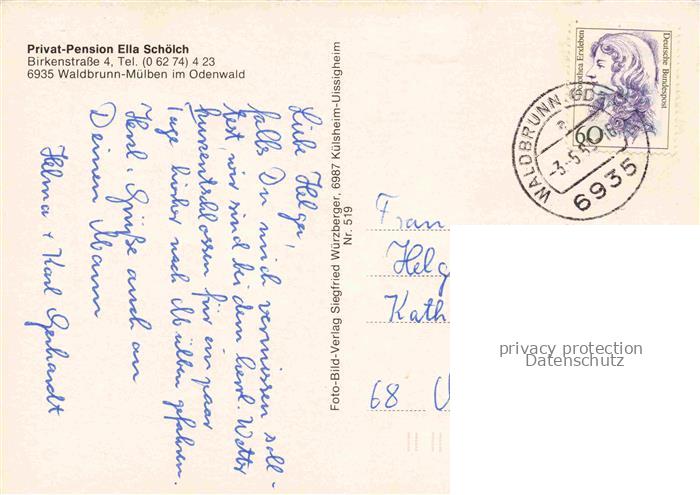 Privat-Pension Ella Schölch
Birkenstraße 4, Tel. (0 62 74) 4 23
6935 Waldbrunn-Mülben im Odenwald
Liebe Helga,
falls Du mich vermissen soll-
test, wir sind bei dem herrl. Wetter
kurzentschlossen für ein paar
Tage hierher nach Mülben gefahren.
Herzl. Grüße auch an
Deinen Mann
Helma + Karl Gerhardt
Foto-Bild-Verlag Siegfried Würzberger, 6987 Külsheim-Uissigheim
Nr. 519
Dorothea Erxleben
Deutsche Bundespost
60
WALDBRUNN, OD
6935
Frau
Helg
Kath
68
privacy protection
Datenschutz